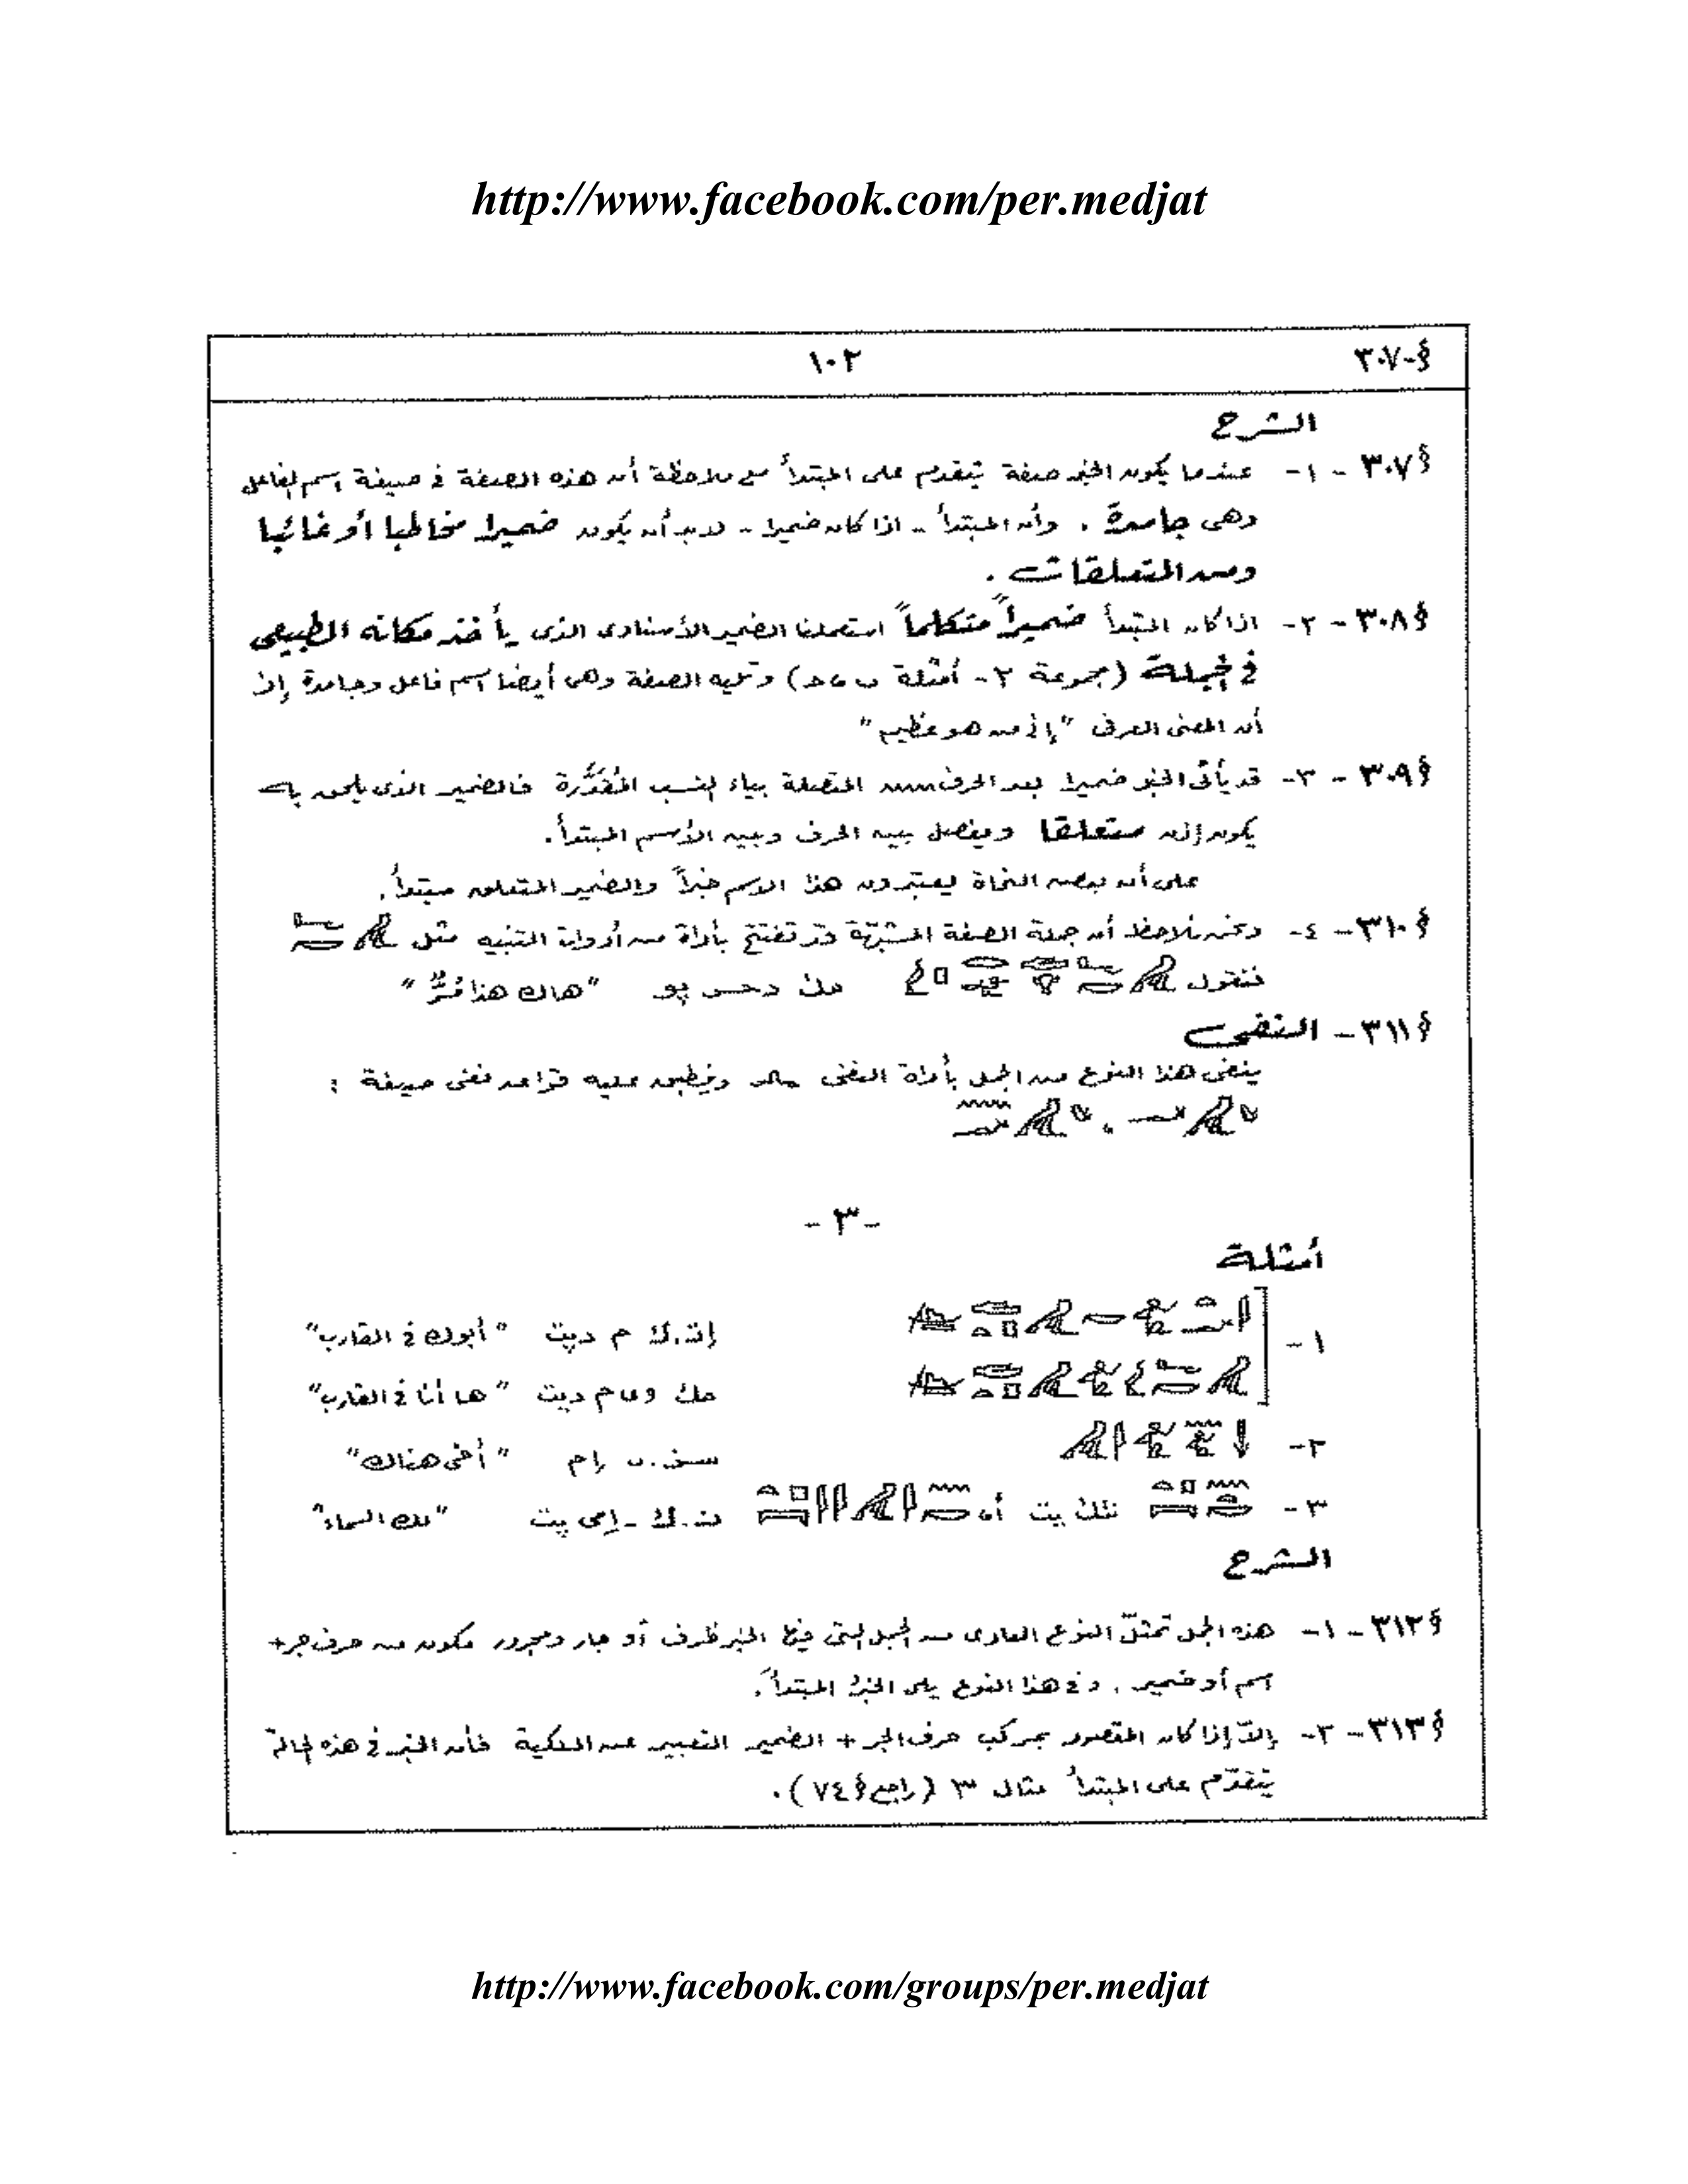 http://www.facebook.com/per.medjat
§-٣٠٧ ١٠٢
الشرح
§٣٠٧ - ١- عندما يكون الخبر صفة يتقدم على المبتدأ مع ملاحظة أن هذه الصفة فى صيغة اسم الفاعل
وهى جامدة . وأن المبتدأ - اذا كان ضميرا - لابد أن يكون ضميرا مخاطبا أو غائبا
ومن المتعلقات .
§٣٠٨ - ٢- اذا كان المبتدأ ضميراً متكلماً استعملنا الضمير الأسنادى الذى يأخذ مكانه الطبيعى
فى الجملة (مجموعة ٢- أمثلة ) وتليه الصفة وهى أيضا اسم فاعل وجامدة إذ
أن المعنى الحرفى "إنى من هو عظيم"
§٣٠٩ - ٣- قد يأتى الخبر ضميرا بعد الحرف المتصلة بياء النسب المُقدَّرة فالضمير الذى يلحق به
يكون إذن متعلقا ويفصل بين الحرف وبين الأسم المبتدأ.
على أن بعض النحاة يعتبرون هذا الاسم خبراً والضمير المتعلق مبتدأ.
§٣١٠ - ٤- ونحن نلاحظ أن جملة الصفة المشبّهة قد تفتتح بأداة من أدوات التنبيه مثل
فنقول مك دحر پو "هاك هذا مُرٌّ"
§٣١١ - النفى
ينفى هذا النوع من الجمل بأداة النفى وينطبق عليه قواعد نفى صيغة :
-٣-
أمثلة
١- إت.ك م دپت "أبوك فى القارب"
مك وى م دپت "ها أنا فى القارب"
٢- سن.ى إم "أخى هناك"
٣- نتك پت أو ن.ك-إمى پت "لك السماء"
الشرح
§٣١٢ - ١- هذه الجمل تمثّل النوع العادى من الجمل التى فيها الخبر ظرف أو جار ومجرور مكون من حرف جر+
اسم أو ضمير . وفى هذا النوع يلى الخبرُ المبتدأَ.
§٣١٣ - ٢- إلاّ إذا كان المقصود بمركب حرف الجر + الضمير التعبير عن الملكية فأن الخبر فى هذه الحالة
يتقدّم على المبتدأ مثال ٣ (راجع §٧٤).
http://www.facebook.com/groups/per.medjat